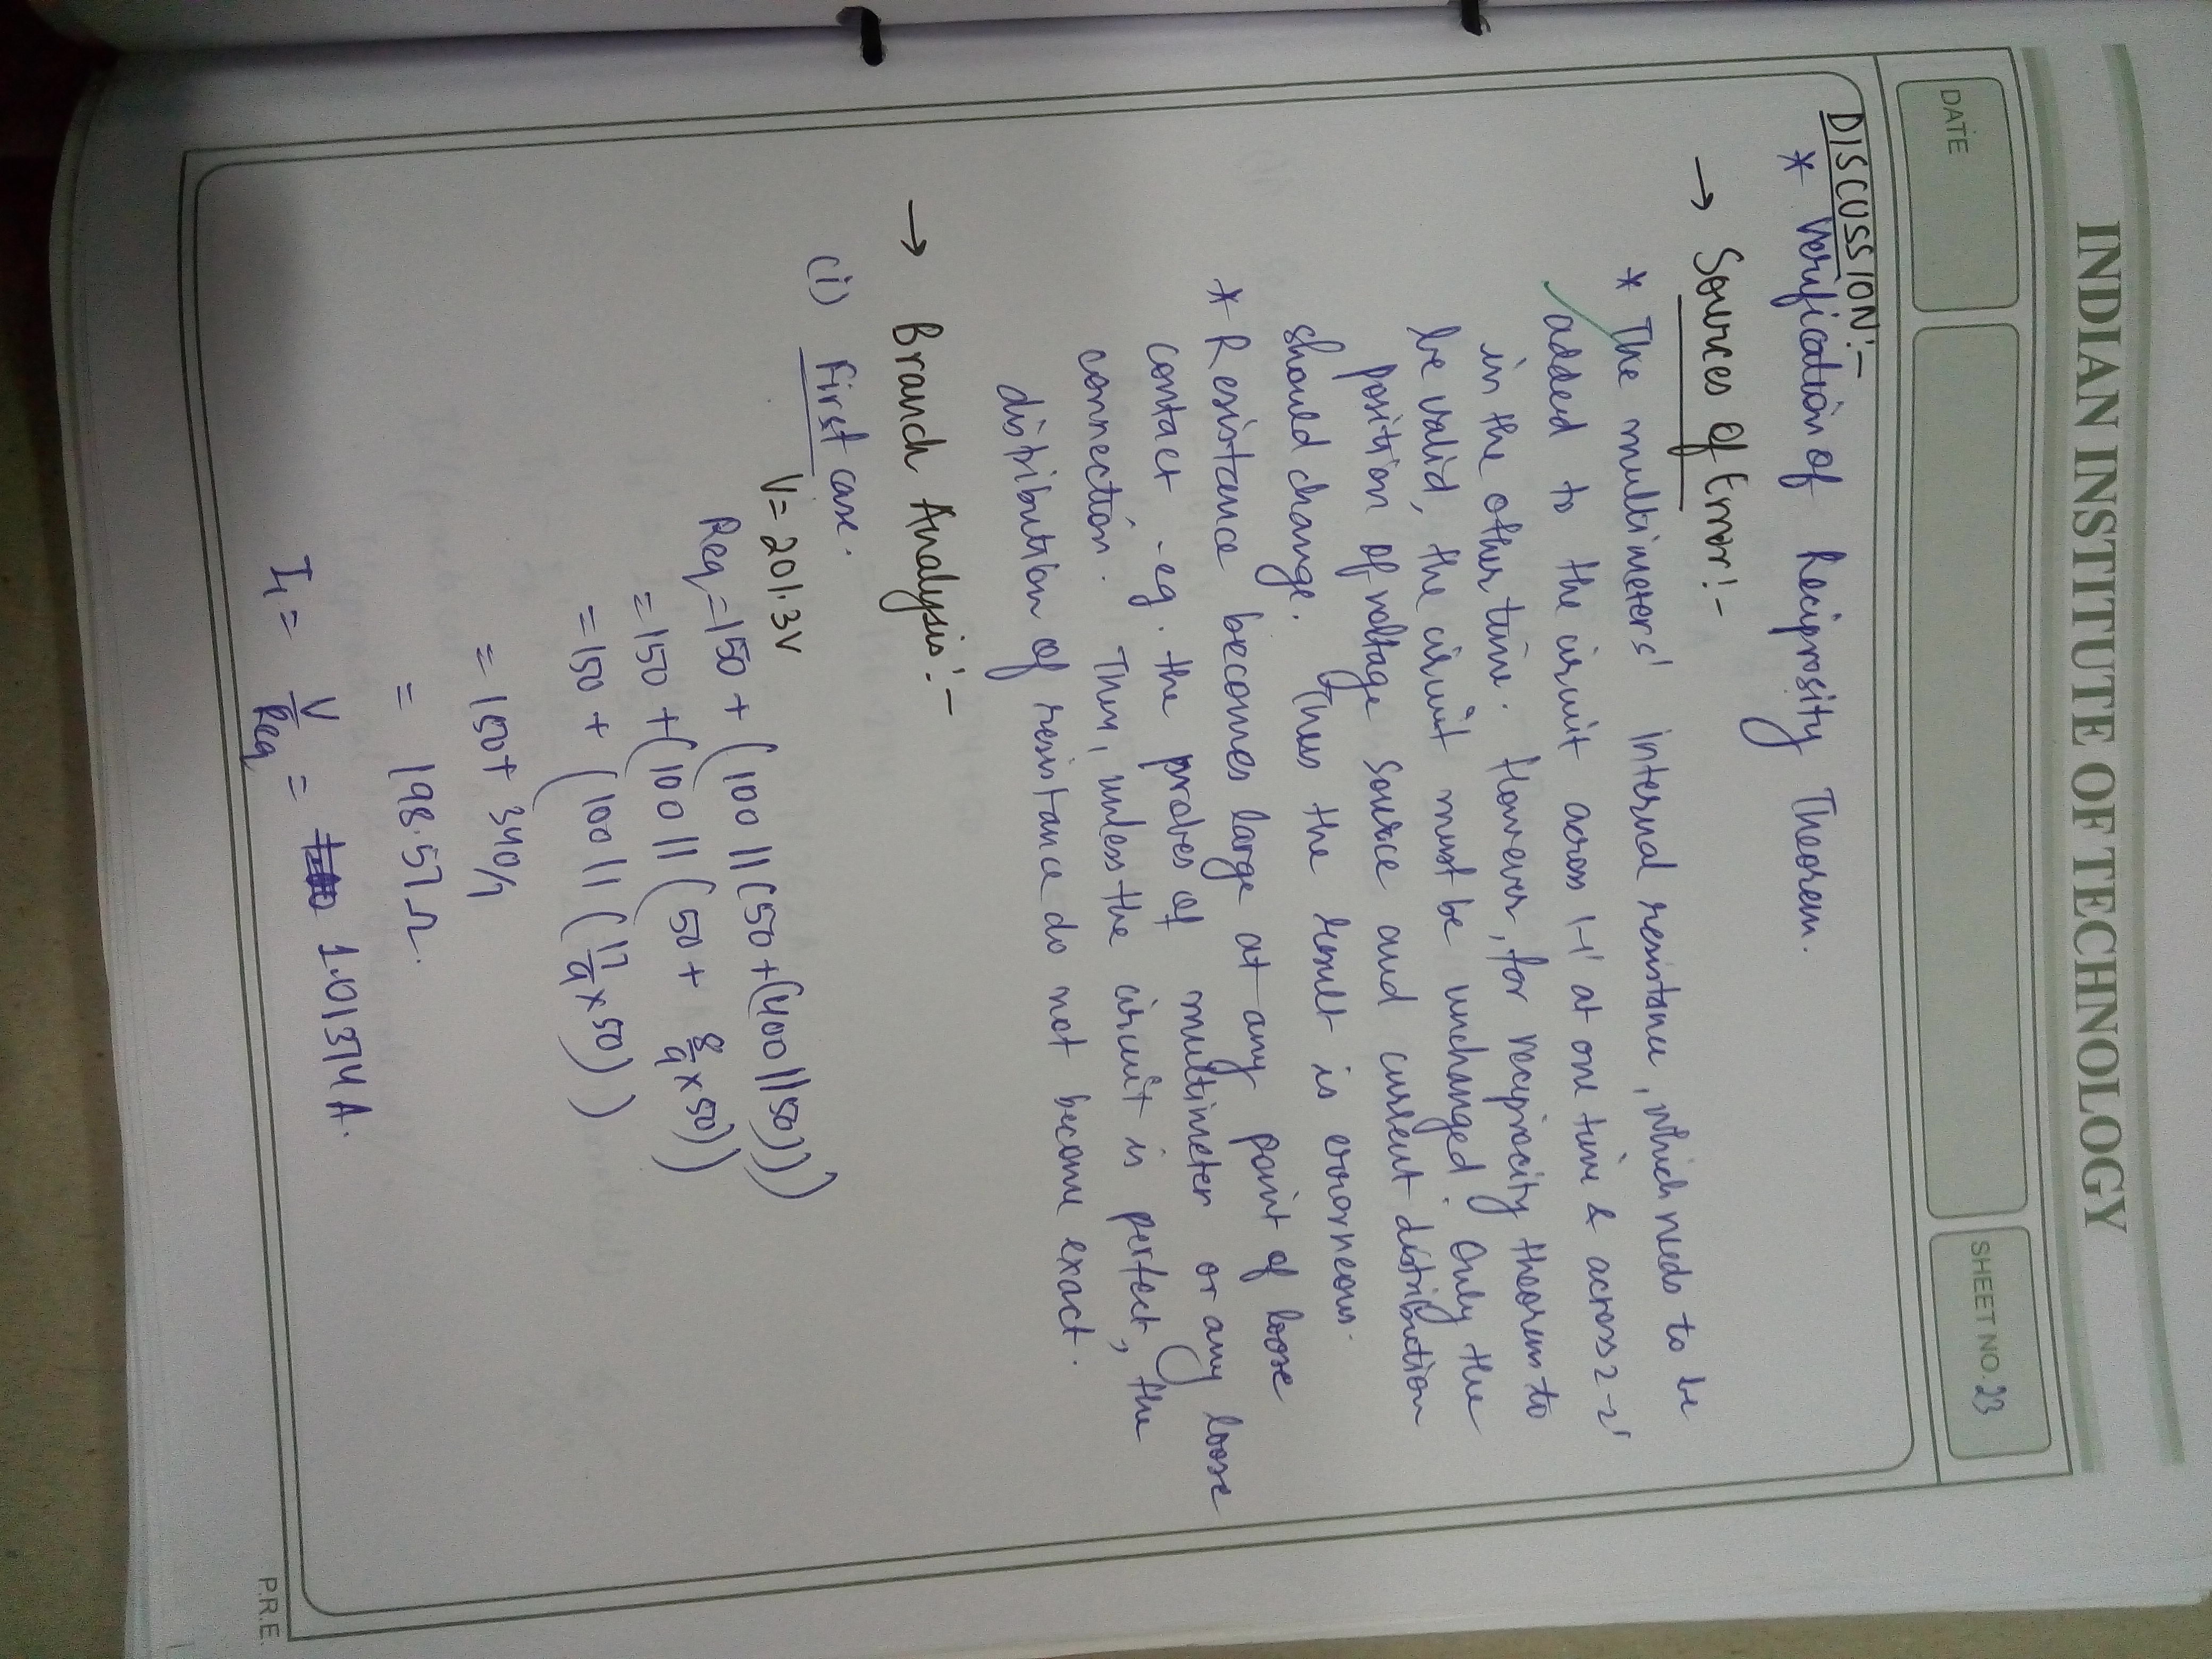 INDIAN INSTITUTE OF TECHNOLOGY
DATE
SHEET NO. 23
DISCUSSION:-
* Verification of Reciprosity Theorem.
→ Sources Of Error:-
* The multimeters' internal resistance, which needs to be
added to the circuit across 1-1' at one time & across 2-2'
in the other time. However, for reciprocity theorem to
be valid, the circuit must be unchanged. Only the
position of voltage source and current distribution
should change. Thus the result is errorneous.
* Resistance becomes large at any point of loose
contact -eg. the probes of multimeter or any loose
connection. Thus, unless the circuit is perfect, the
distribution of resistance do not become exact.
→ Branch Analysis:-
(i) First case.
V= 201.3V
Req = 150 + (100 || (50 + (400 || 50)))
= 150 + (100 || (50 + 8/9 x 50))
= 150 + (100 || (17/9 x 50))
= 150 + 340/7
= 198.57 Ω.
I₁ = V/Req = 1.01374 A.
P.R.E.